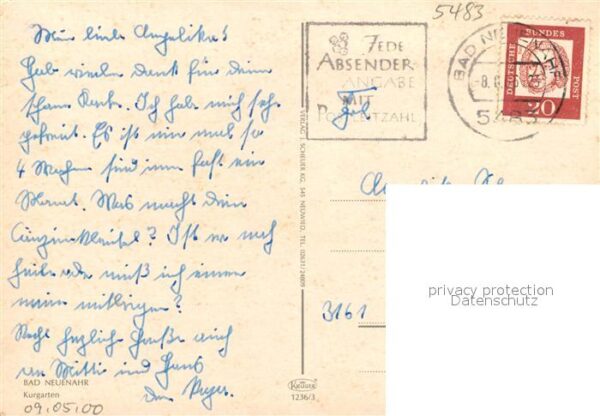 5483
Meine liebe Angelika!
Hab vielen Dank für deine
schöne Karte. Ich hab mich sehr
gefreut. Es ist nun mal so
4 Wochen sind nun fast ein
Monat. Was macht dein
? Ist er noch
heile oder muß ich einen
neuen mitbringen?
Recht herzliche Grüße auch
an Mutti und Hans
dein
BAD NEUENAHR
Kurgarten
09.05.00
JEDE
ABSENDER-
ANGABE
MIT
POSTLEITZAHL
BAD NEUENAHR
-8.
5483
DEUTSCHE BUNDESPOST
20
VERLAG J. SCHEUER KG. 545 NEUWIED, TEL. 02631/24809
3161
privacy protection
Datenschutz
Krüger
1236/3